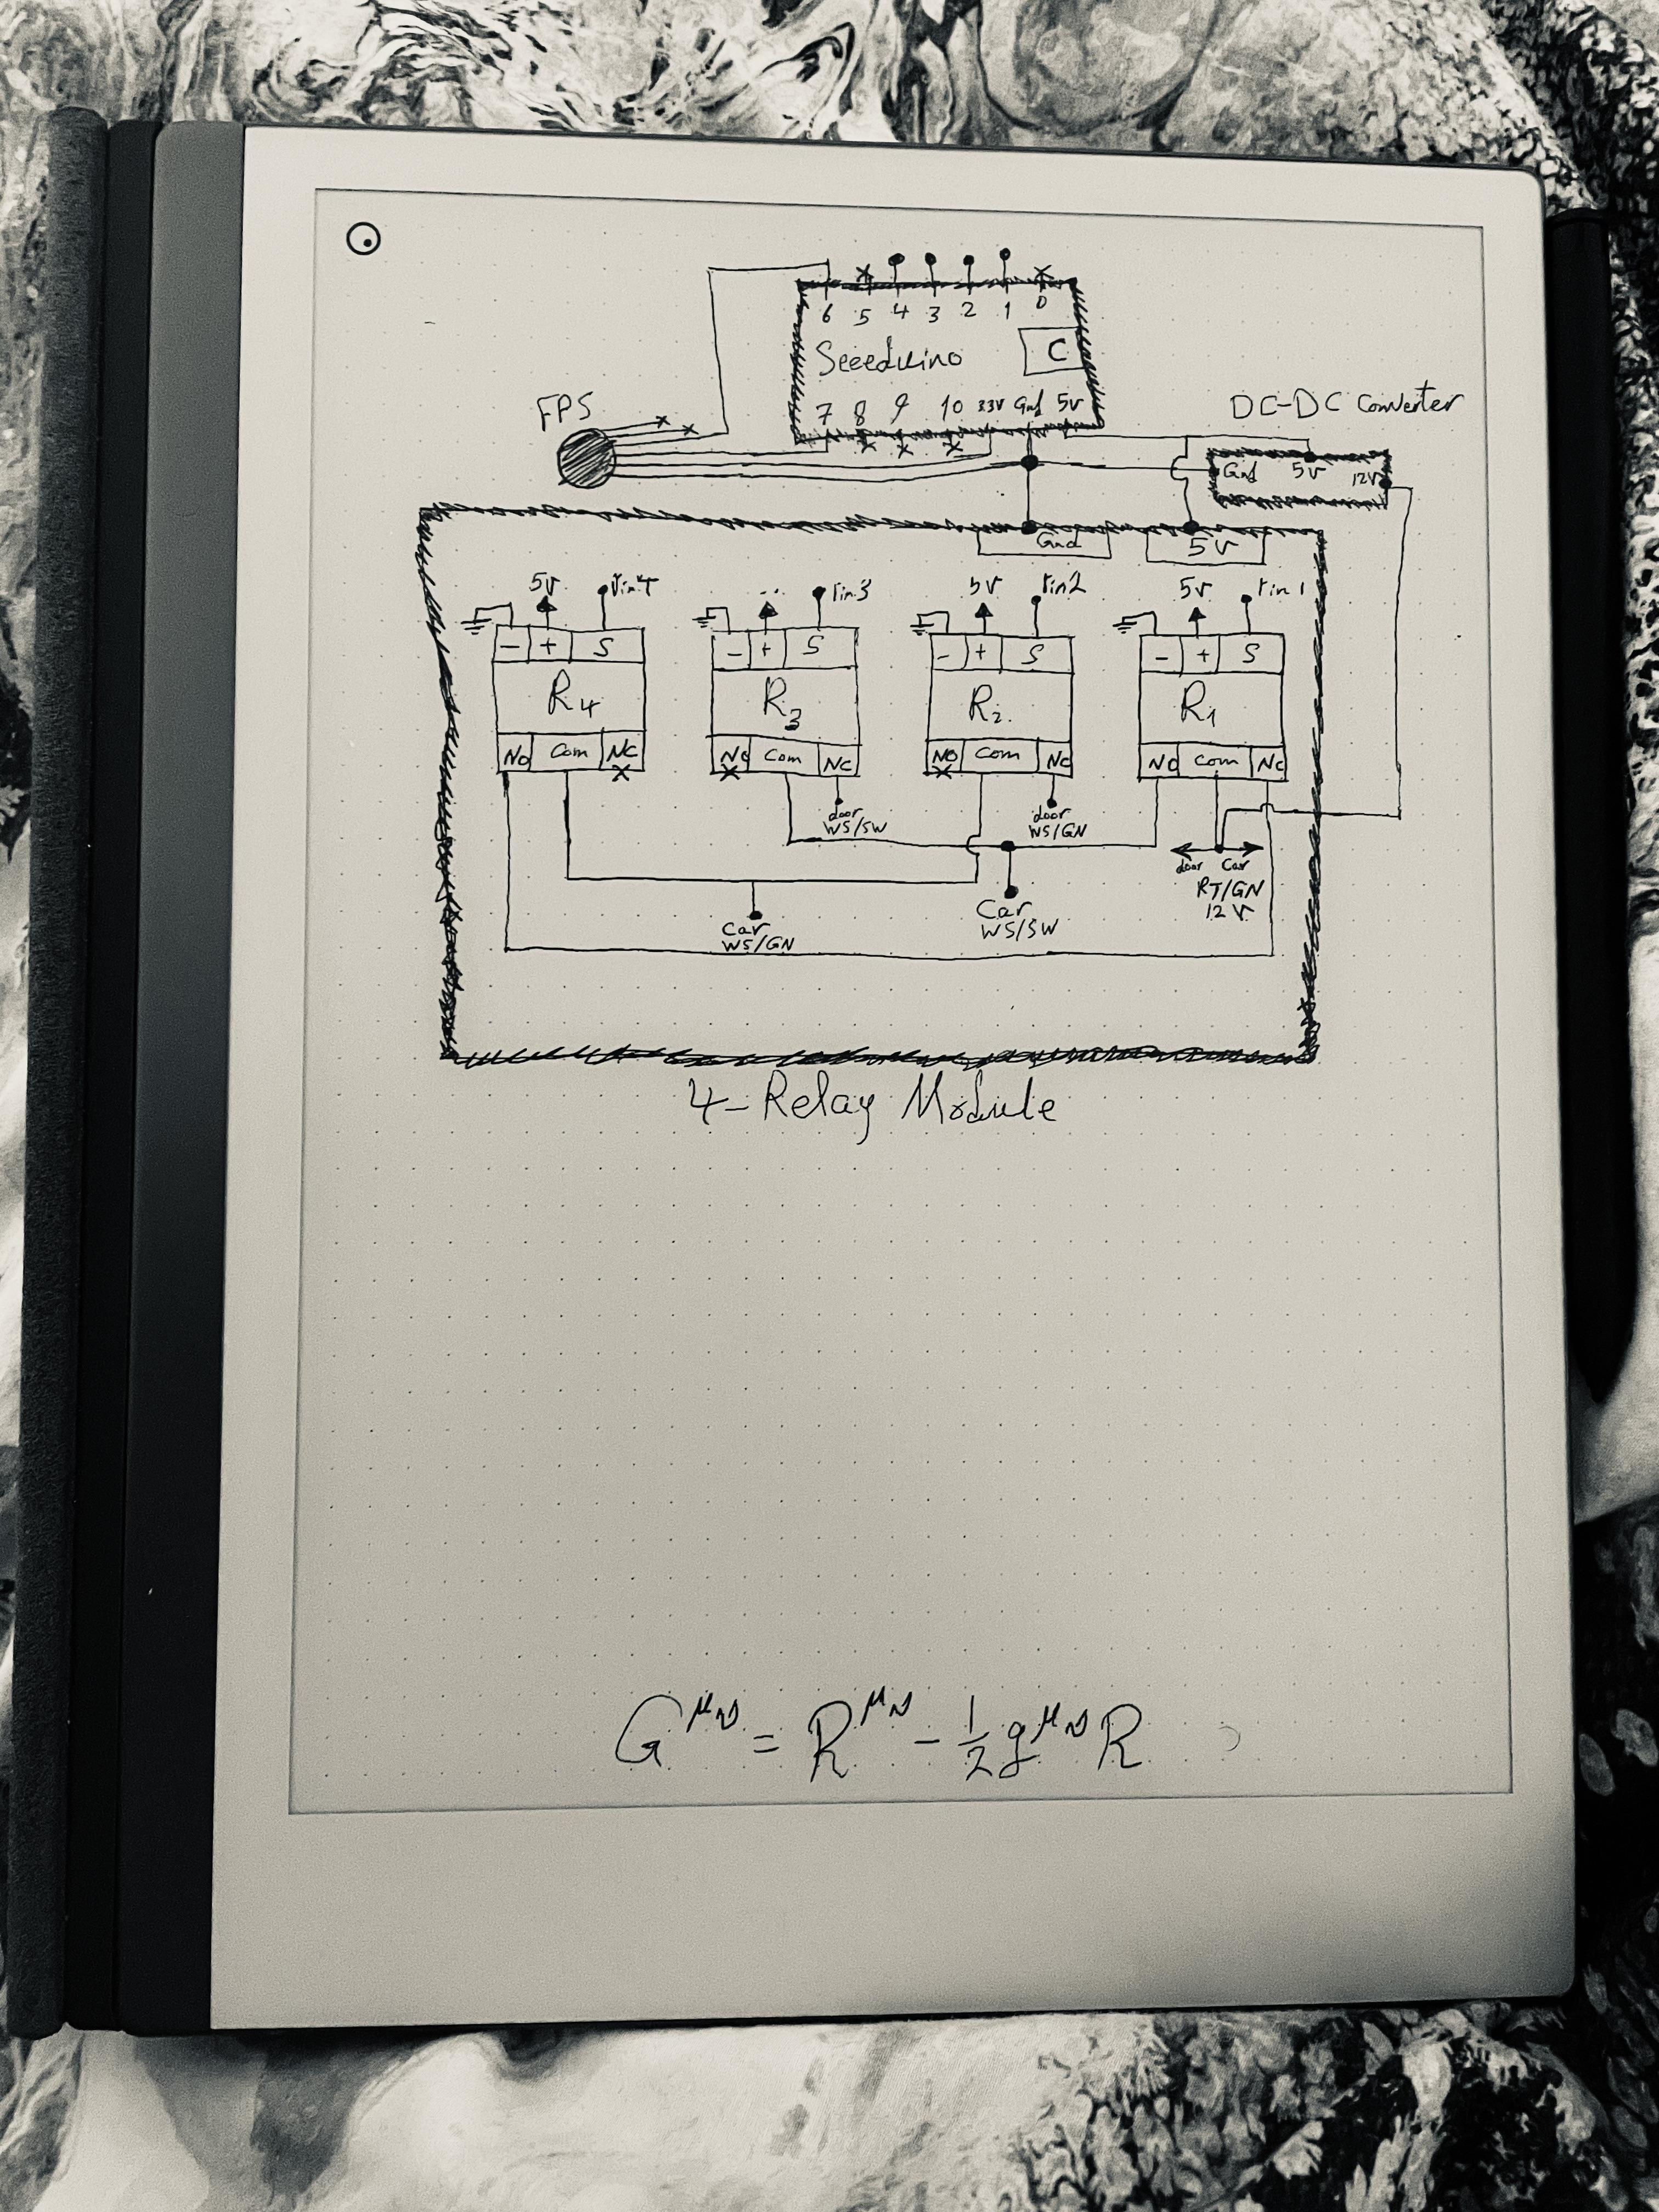 6 5 4 3 2 1 0
Seeeduino C
7 8 9 10 3.3V Gnd 5V
FPS
DC-DC Converter
Gnd 5V 12V
Gnd 5V
5V Pin4 .. Pin3 5V Pin2 5V Pin1
- + S - + S - + S - + S
R4 R3 R2 R1
NO Com NC NO Com NC NO Com NC NO Com NC
door door
WS/SW WS/GN
door Car
RT/GN
12V
Car
WS/SW
Car
WS/GN
4-Relay Module
G^μν = R^μν - 1/2 g^μν R